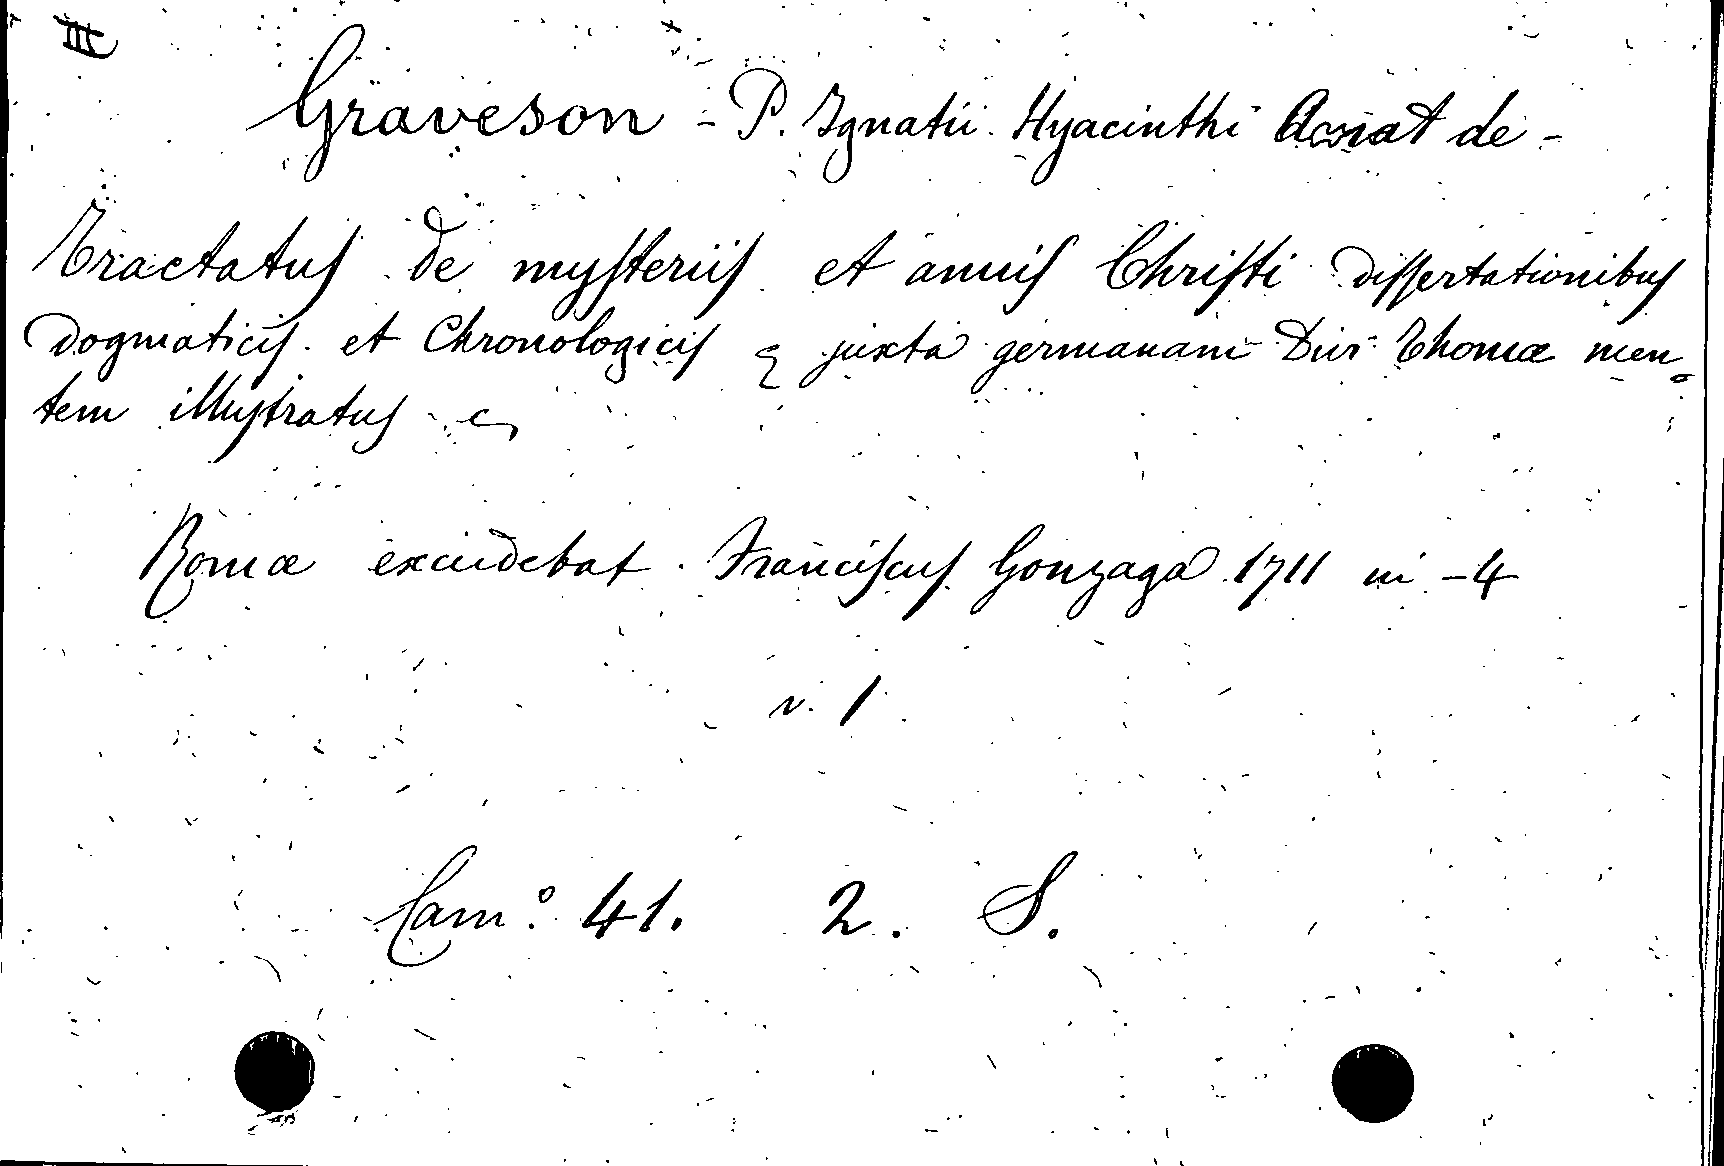 III
Graveson - P. Ignatii Hyacinthi Amat de -
Tractatus de mysteriis et annis Christi dissertationibus
dogmaticis et Chronologicis juxta germanam Divi Thomæ men
tem illustratus
Romæ excudebat Franciscus Gonzaga 1711 in -4
v. 1
Cam.º 41. 2. S.